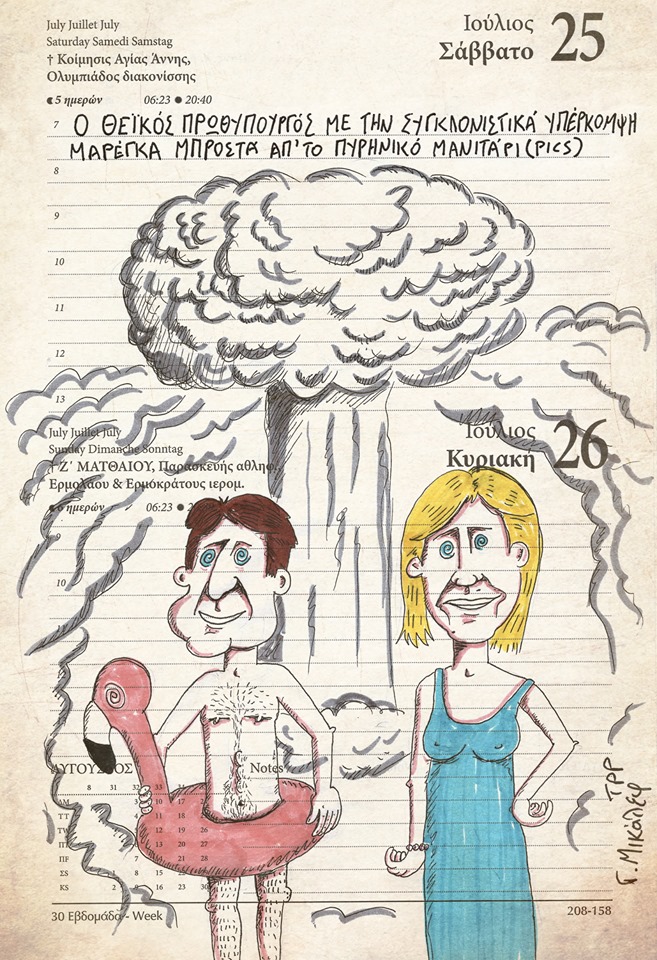 July Juillet July
Saturday Samedi Samstag
† Κοίμησις Αγίας Άννης,
Ολυμπιάδος διακονίσσης
5 ημερών 06:23 ● 20:40
Ιούλιος
Σάββατο 25
7 Ο ΘΕΪΚΌΣ ΠΡΩΘΥΠΟΥΡΓΌΣ ΜΕ ΤΗΝ ΣΥΓΚΛΟΝΙΣΤΙΚΆ ΥΠΈΡΚΟΜΨΗ
ΜΑΡΈΓΚΑ ΜΠΡΟΣΤΆ ΑΠ'ΤΟ ΠΥΡΗΝΙΚΌ ΜΑΝΙΤΆΡΙ (PICS)
8
9
10
11
12
13
July Juillet July
Sunday Dimanche Sonntag
† Ζ΄ ΜΑΤΘΑΙΟΥ, Παρασκευής αθλησ.
Ερμολάου & Ερμοκράτους ιερομ.
6 ημερών 06:23 ●
Ιούλιος
Κυριακή 26
9
10
ΑΥΓΟΥΣΤΟΣ
Notes
8 31 32 33
3 10 17
ΤΤ
ΤW
ΠΕ
ΠΡ 7 21 28
ΣΣ 1 8 15
KS 2 16 23 30
30 Εβδομάδα - Week
208-158
ΤΡΡ
Γ. Μικάλεφ